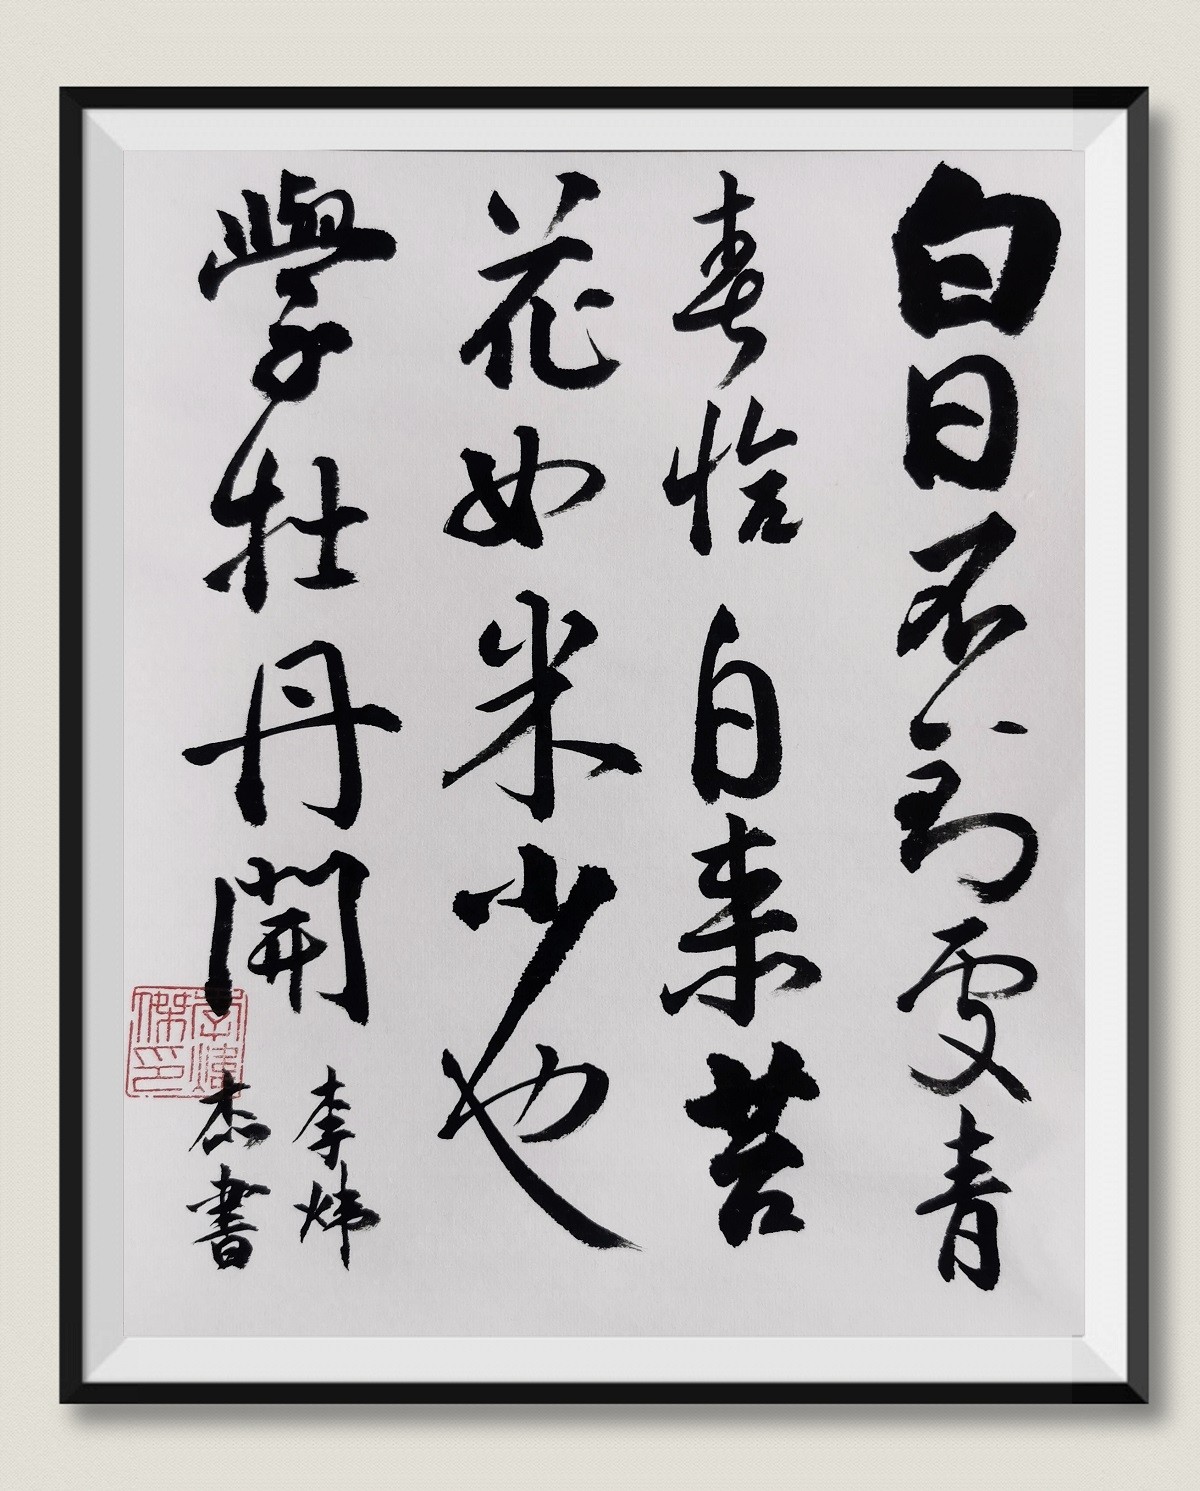 白日不到處青
春恰自来苔
花如米小也
學牡丹開
李炜
杰書
李煒傑印